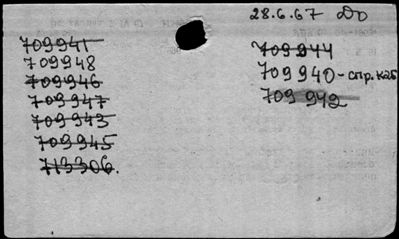 28.6.67 До
709941
709948
709946
709947
709943
709945
713306.
709944
709940-спр. каб
709942